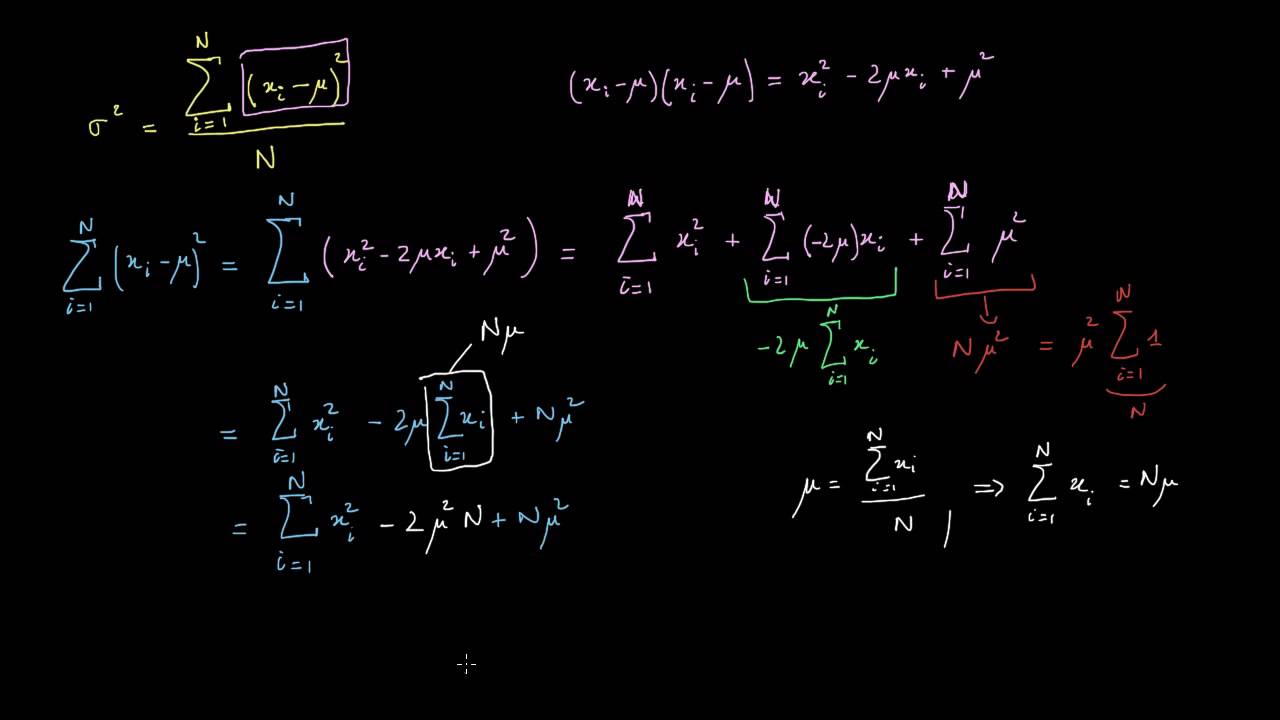 σ² = (∑_{i=1}^{N} (x_i − μ)²) / N
(x_i − μ)(x_i − μ) = x_i² − 2μx_i + μ²
∑_{i=1}^{N} (x_i − μ)² = ∑_{i=1}^{N} (x_i² − 2μx_i + μ²) = ∑_{i=1}^{N} x_i² + ∑_{i=1}^{N} (−2μ)x_i + ∑_{i=1}^{N} μ²
−2μ ∑_{i=1}^{N} x_i
Nμ² = μ² ∑_{i=1}^{N} 1
N
Nμ
= ∑_{i=1}^{N} x_i² − 2μ ∑_{i=1}^{N} x_i + Nμ²
μ = (∑_{i=1}^{N} x_i) / N ⇒ ∑_{i=1}^{N} x_i = Nμ
= ∑_{i=1}^{N} x_i² − 2μ² N + Nμ²